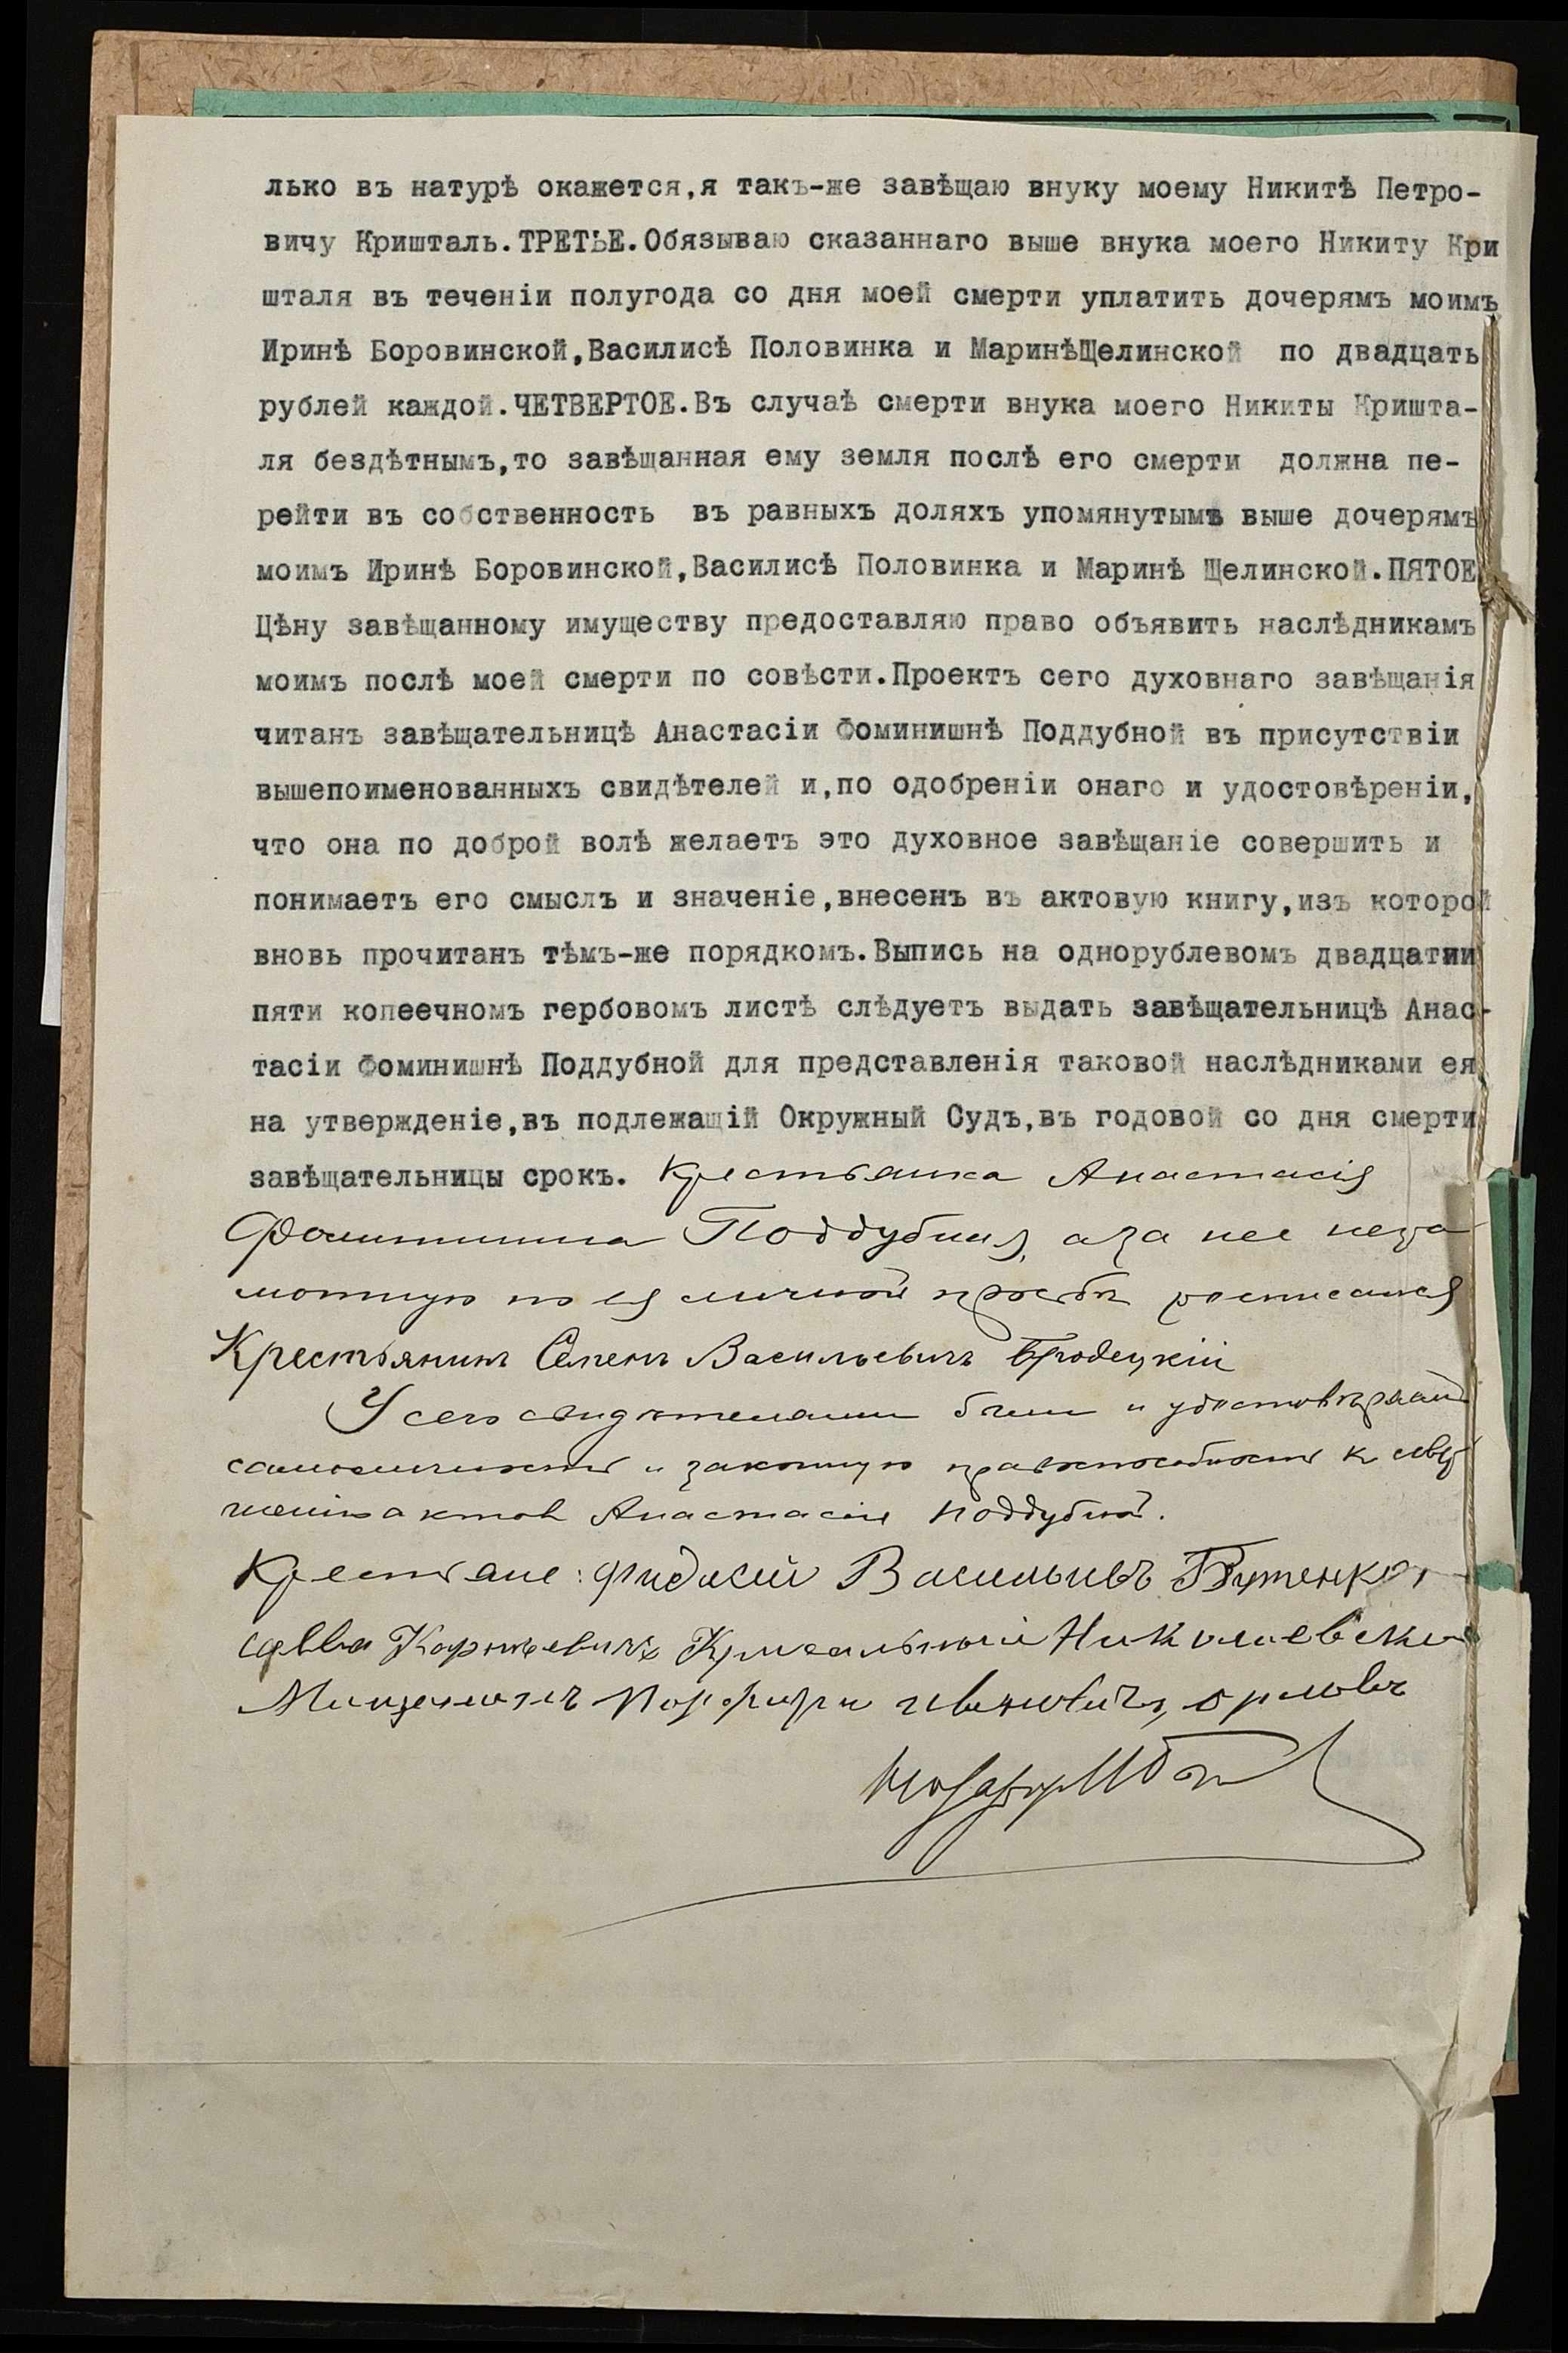 лько въ натурѣ окажется,я такъ-же завѣщаю внуку моему Никитѣ Петро-
вичу Кришталь.ТРЕТЬЕ.Обязываю сказаннаго выше внука моего Никиту Кри
шталя въ теченіи полугода со дня моей смерти уплатить дочерямъ моимъ
Иринѣ Боровинской,Василисѣ Половинка и МаринѣЩелинской по двадцать
рублей каждой.ЧЕТВЕРТОЕ.Въ случаѣ смерти внука моего Никиты Кришта-
ля бездѣтнымъ,то завѣщанная ему земля послѣ его смерти должна пе-
рейти въ собственность въ равныхъ доляхъ упомянутымъ выше дочерямъ
моимъ Иринѣ Боровинской,Василисѣ Половинка и Маринѣ Щелинской.ПЯТОЕ
Цѣну завѣщанному имуществу предоставляю право объявить наслѣдникамъ
моимъ послѣ моей смерти по совѣсти.Проектъ сего духовнаго завѣщанія
читанъ завѣщательницѣ Анастасіи Фоминишнѣ Поддубной въ присутствіи
вышепоименованныхъ свидѣтелей и,по одобреніи онаго и удостовѣреніи,
что она по доброй волѣ желаетъ это духовное завѣщаніе совершить и
понимаетъ его смыслъ и значеніе,внесенъ въ актовую книгу,изъ которой
вновь прочитанъ тѣмъ-же порядкомъ.Выпись на однорублевомъ двадцатии
пяти копеечномъ гербовомъ листѣ слѣдуетъ выдать завѣщательницѣ Анас-
тасіи Фоминишнѣ Поддубной для представленія таковой наслѣдниками ея
на утвержденіе,въ подлежащій Окружный Судъ,въ годовой со дня смерти
завѣщательницы срокъ. Крестьянка Анастасія
Фоминишна Поддубная, а за нее негра
мотную по ея личной просьбѣ росписался
Крестьянинъ Семенъ Васильевичъ Бродецкій
У сего свидѣтелями были и удостовѣряемъ
самоличность и законную правоспособность к совер
шенію актов Анастасіи Поддубной.
Крестьяне: Васильевъ Бутенко,
Савва Карповичъ Николаевскій
Мищанинъ Порфирий Ивановичъ Орловъ